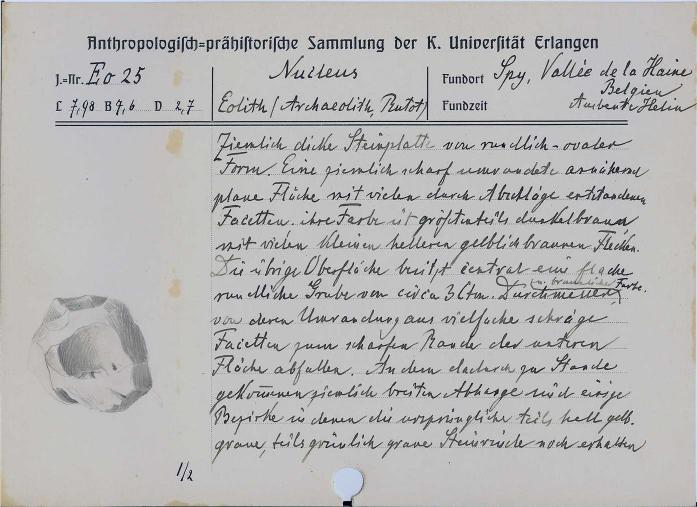 Anthropologisch=prähistorische Sammlung der K. Universität Erlangen
J.=Nr. Eo 25
Nucleus
Fundort Spy, Vallée de la Haine
Belgien
L 7,98 B 7,6 D 2,7
Eolith (Archaeolith, Rutot)
Fundzeit
Ziemlich dicke Steinplatte von rundlich-ovaler
Form. Eine ziemlich scharf umrandete annähernd
plane Fläche mit vielen durch Abschläge entstandenen
Facetten. ihre Farbe ist größtenteils dunkelbraun
mit vielen kleinen helleren gelblichbraunen Flecken.
Die übrige Oberfläche besitzt central eine flache
(u. bräunliche Farbe.
rundliche Grube von circa 3 Ctm. Durchmesser,
von deren Umrandung aus vielfache schräge
Facetten zum scharfen Rande der unteren
Fläche abfallen. An dem dadurch zu Stande
gekommenen ziemlich breiten Abhange sind einige
Bezirke in denen die ursprüngliche teils hell gelb.
graue, teils grünlich graue Steinrinde noch erhalten
1/2